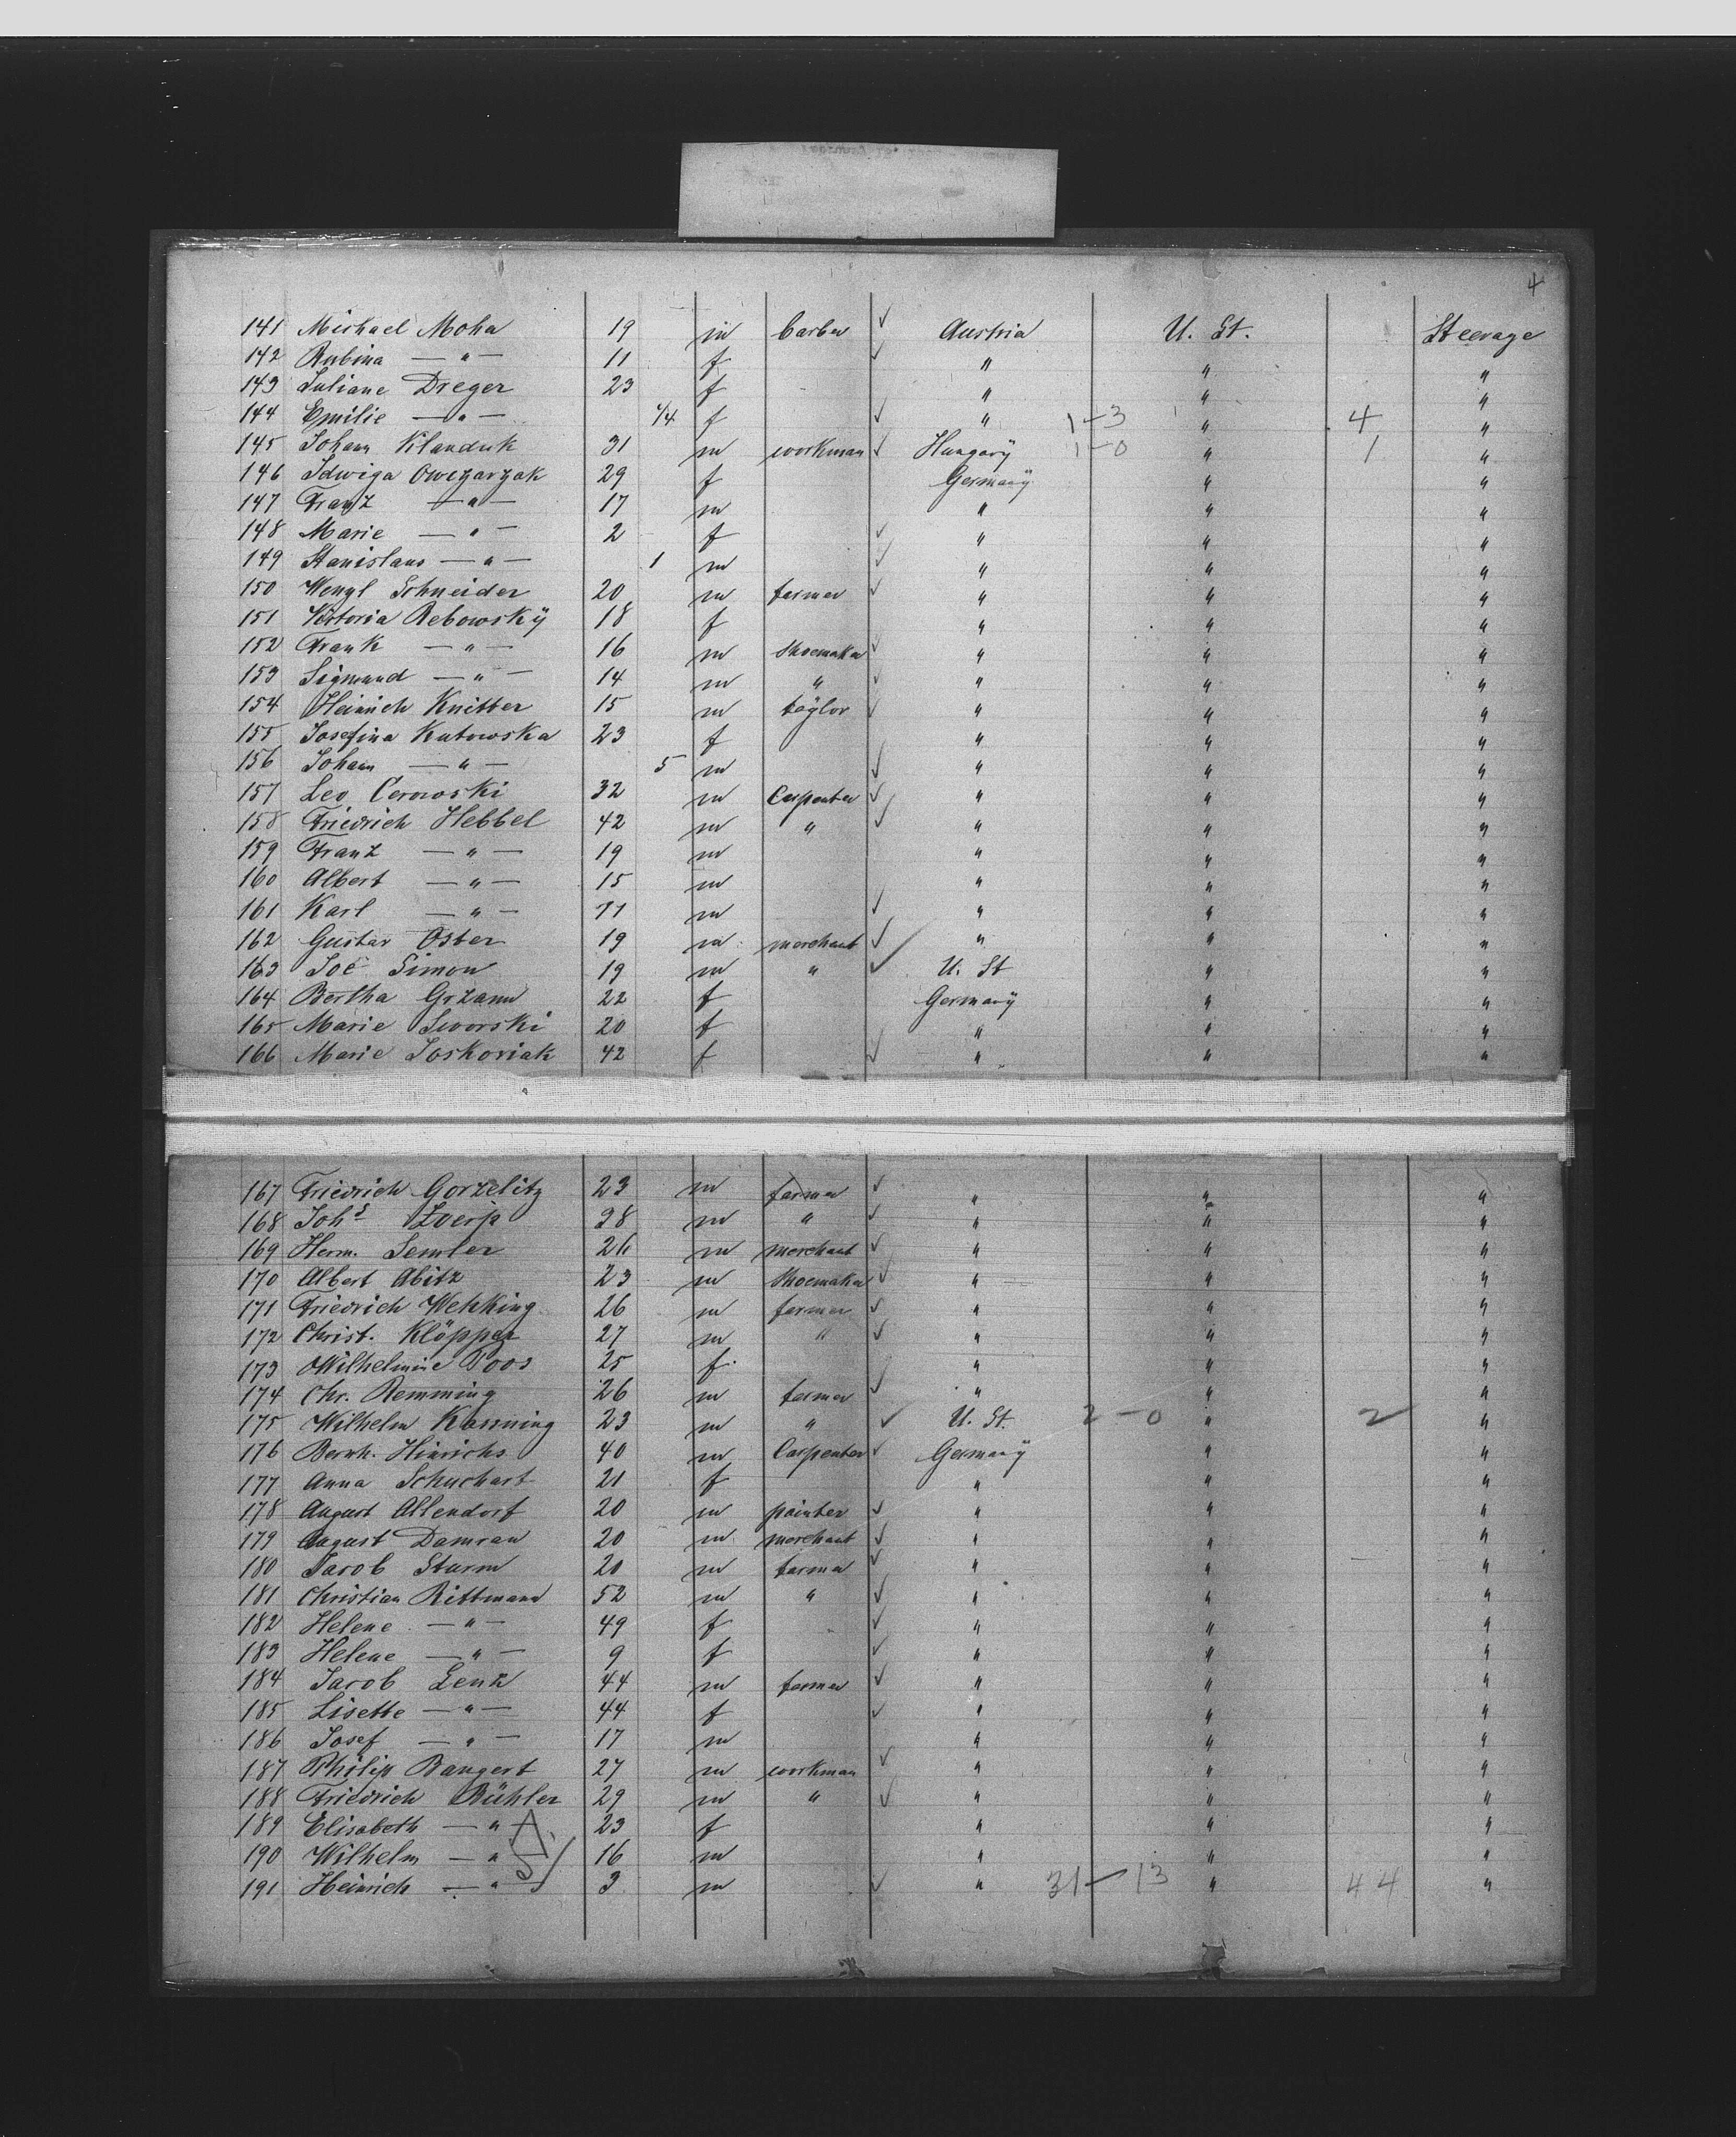 4
141 Michael Moha 19 m barber ✓ Austria U. St. Steerage
142 Rubina — " — 11 f ✓ " " "
143 Juliane Dreger 23 f " " "
144 Emilie — " — 1/4 f ✓ " 1-3 " 4 "
145 Johann Klanduk 31 m workman ✓ Hungary 1-0 " 1 "
146 Idwiga Owczarzak 29 f Germany " "
147 Franz — " — 17 m " " "
148 Marie — " — 2 f ✓ " " "
149 Stanislaus — " — 1 m ✓ " " "
150 Wenzl Schneider 20 m farmer ✓ " " "
151 Victoria Rebowsky 18 f " " "
152 Frank — " — 16 m Shoemaker ✓ " " "
153 Sigmund — " — 14 m " ✓ " " "
154 Heinrich Knitter 15 m taylor ✓ " " "
155 Josefina Kutowska 23 f " " "
156 Johann — " — 5 m ✓ " " "
157 Leo Cerowski 32 m Carpenter ✓ " " "
158 Friedrich Hebbel 42 m " ✓ " " "
159 Franz — " — 19 m " " "
160 Albert — " — 15 m " " "
161 Karl — " — 11 m ✓ " " "
162 Gustav Oster 19 m merchant ✓ " " "
163 Joe Simon 19 m " ✓ U. St " "
164 Bertha Grzann 22 f Germany " "
165 Marie Sworski 20 f " " "
166 Marie Joskoviak 42 f ✓ " " "
167 Friedrich Gorzelitz 23 m farmer ✓ " " "
168 Johs Zverip 28 m " ✓ " " "
169 Herm. Semler 26 m merchant ✓ " " "
170 Albert Abitz 23 m Shoemaker ✓ " " "
171 Friedrich Wehking 26 m farmer ✓ " " "
172 Christ. Klöpper 27 m " ✓ " " "
173 Wilhelmine Poos 25 f " " "
174 Chr. Remming 26 m farmer ✓ " " "
175 Wilhelm Kanning 23 m " ✓ U. St. 2-0 " 2 "
176 Bernh. Hinrichs 40 m Carpenter ✓ Germany " "
177 Anna Schuchart 21 f " " "
178 August Allendorf 20 m painter ✓ " " "
179 August Damrau 20 m merchant ✓ " " "
180 Jacob Sturm 20 m farmer ✓ " " "
181 Christian Rittmann 52 m " ✓ " " "
182 Helene — " — 49 f ✓ " " "
183 Helene — " — 9 f ✓ " " "
184 Jacob Lenz 44 m farmer ✓ " " "
185 Lisette — " — 44 f ✓ " " "
186 Josef — " — 17 m " " "
187 Philip Bangert 27 m workman ✓ " " "
188 Friedrich Bühler 29 m " ✓ " " "
189 Elisabeth — " — 23 f " " "
190 Wilhelm — " 16 m " " "
191 Heinrich — " 3 m ✓ " 31-13 " 44 "